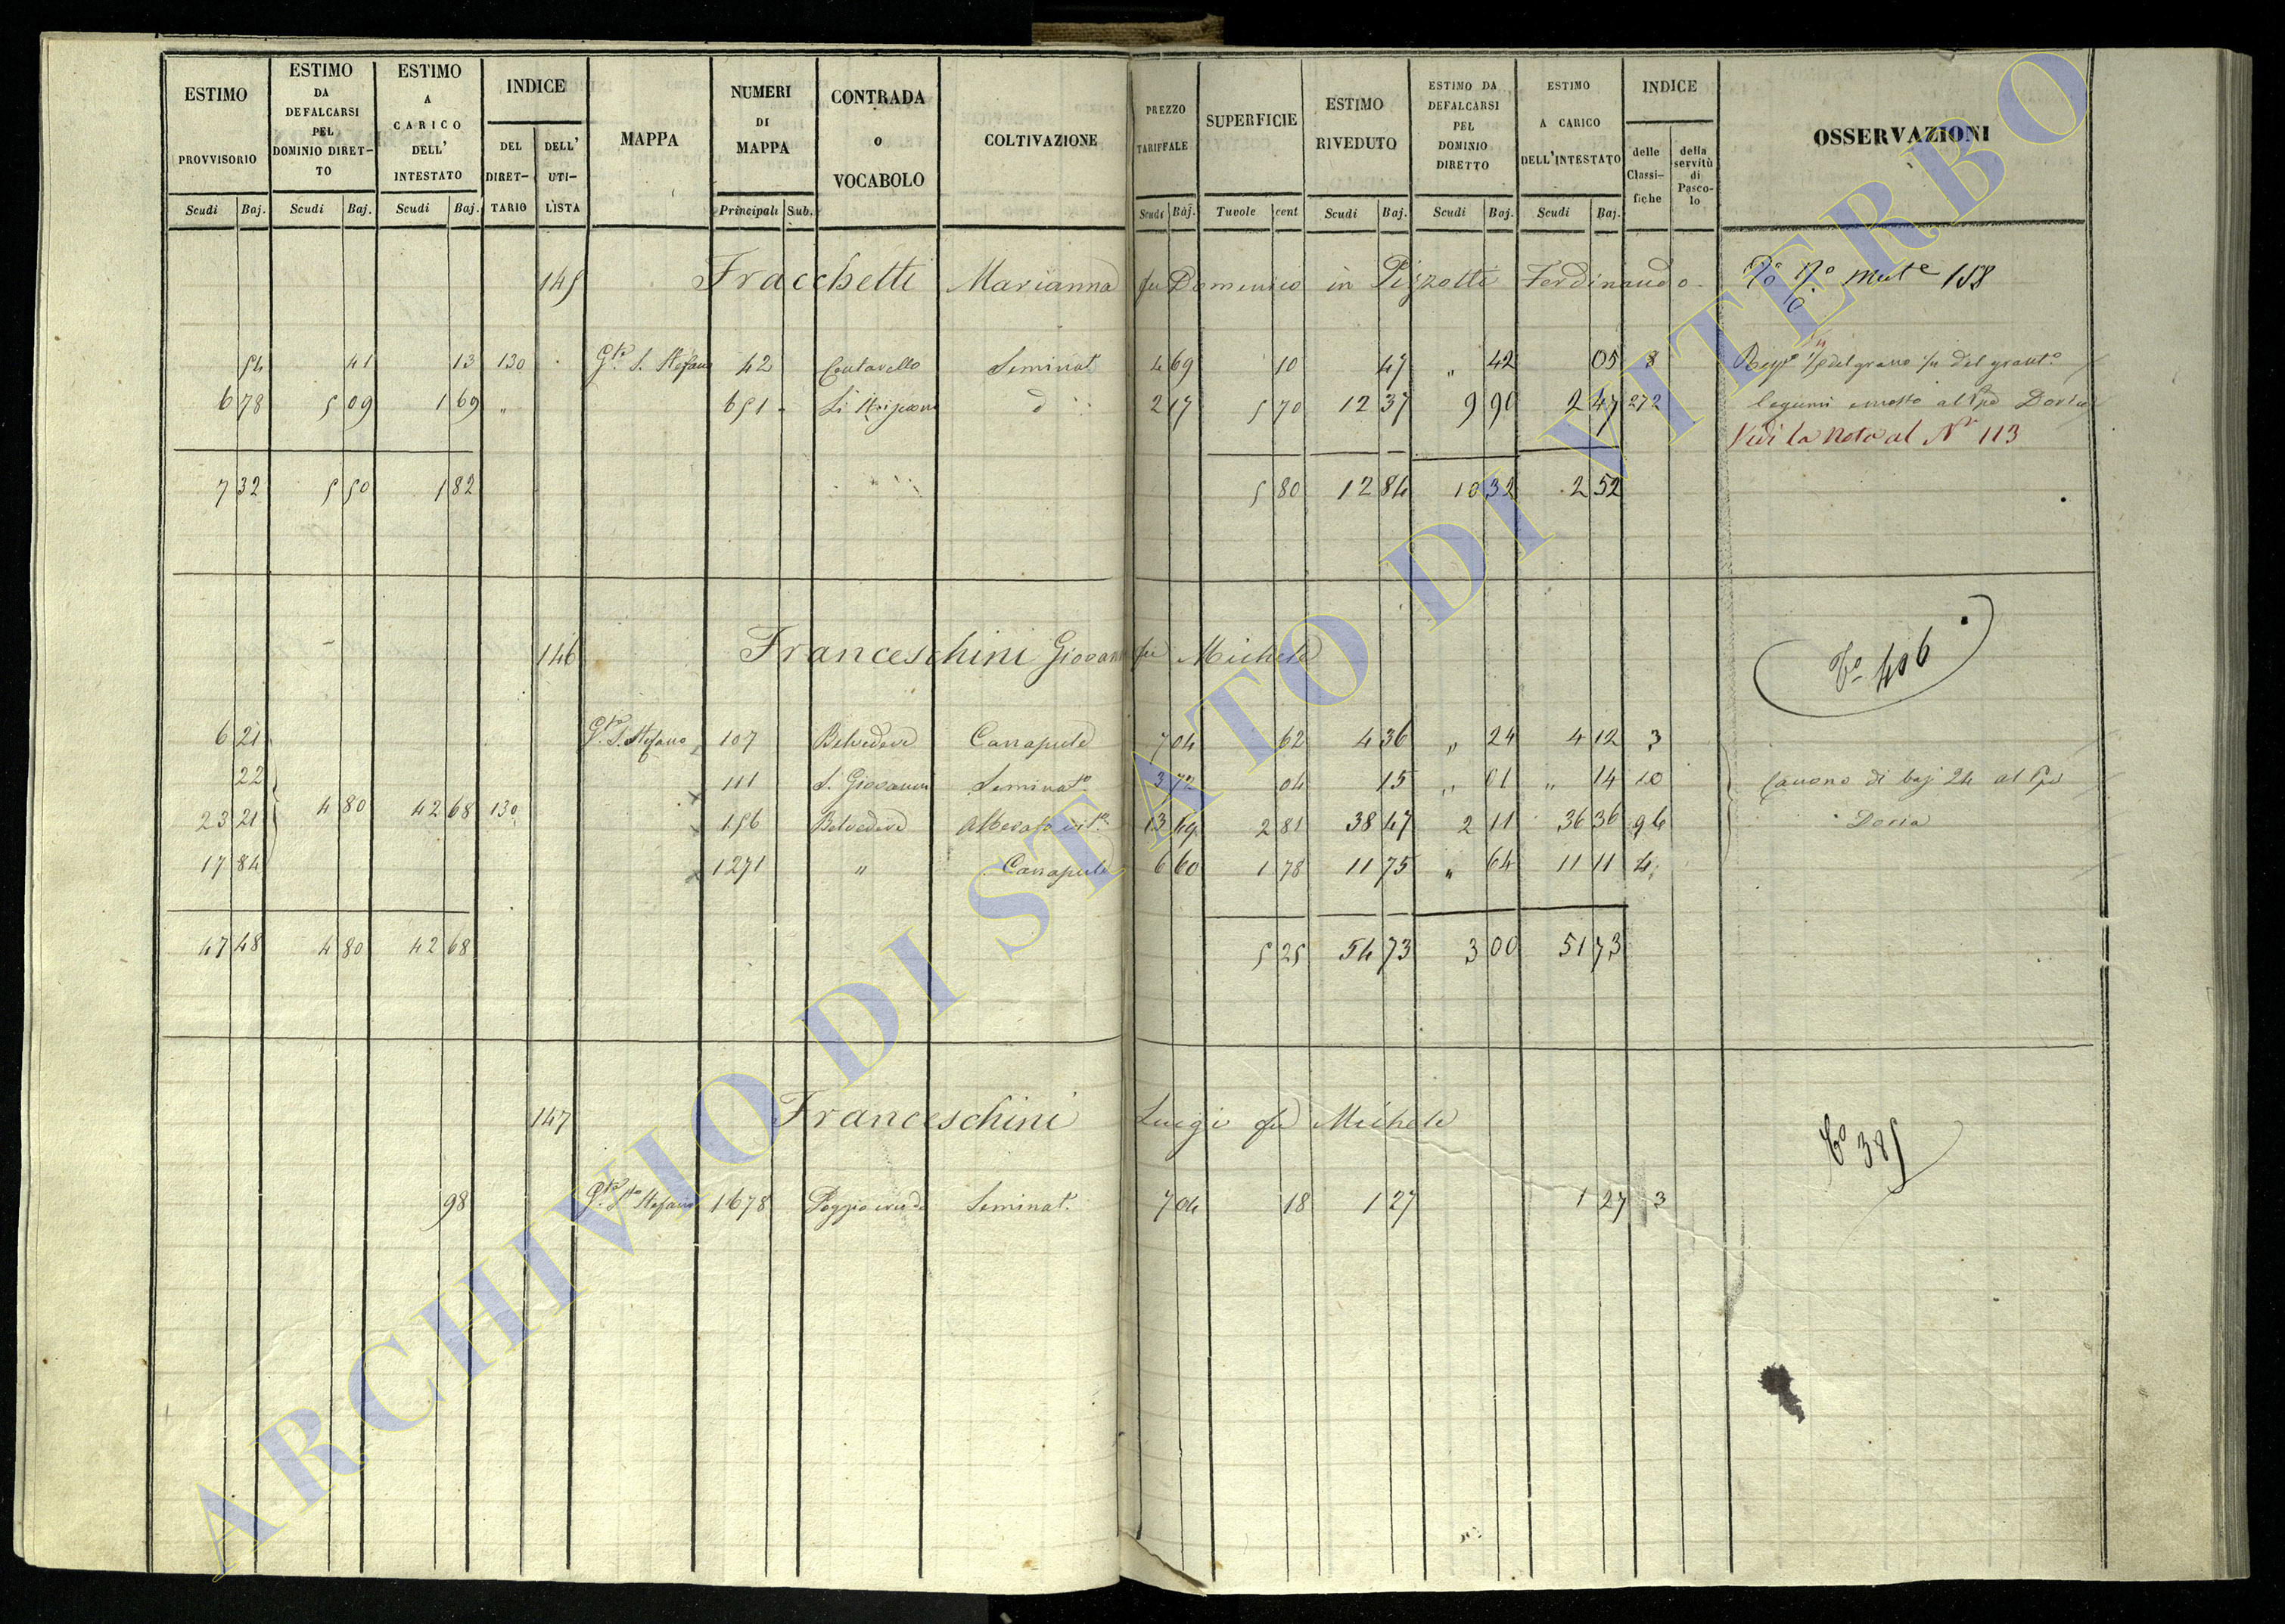 ESTIMO PROVVISORIO
ESTIMO DA DEFALCARSI PEL DOMINIO DIRET-TO
ESTIMO A CARICO DELL' INTESTATO
INDICE
DEL DIRET-TARIO
DELL' UTI-LISTA
MAPPA
NUMERI DI MAPPA
CONTRADA o VOCABOLO
COLTIVAZIONE
PREZZO TARIFFALE
SUPERFICIE
ESTIMO RIVEDUTO
ESTIMO DA DEFALCARSI PEL DOMINIO DIRETTO
ESTIMO A CARICO DELL'INTESTATO
INDICE
delle Classi-fiche
della servitù di Pasco-lo
OSSERVAZIONI
Scudi Baj. Scudi Baj. Scudi Baj. Principali Sub. Scudi Baj. Tavole cent Scudi Baj. Scudi Baj. Scudi Baj.
145 Fracchetti Marianna fu Domenico in Pizzotti Ferdinando mute 158
54 41 13 130 S. Stefano 42 Seminat 4 69 10 47 " 42 05 8 del grano del
6 78 5 09 1 69 " 651 2 17 5 70 12 37 9 90 2 47 272 legumi al Doria
Vedi la Nota al N° 113
7 32 5 50 1 82 5 80 12 84 10 32 2 52
146 Franceschini Giovanni fu Michele 406
6 21 S. Stefano 107 Belvedere Canapule 7 04 62 4 36 " 24 4 12 3
22 111 S. Giovanni Seminat. 3 72 04 15 " 01 " 14 10 Canone di baj 24 al
23 21 4 80 42 68 130 156 Belvedere Alberato vit. 13 69 2 81 38 47 2 11 36 36 96 Doria
17 84 1271 " Canapule 6 60 1 78 11 75 " 64 11 11 4
47 48 4 80 42 68 5 25 54 73 3 00 51 73
147 Franceschini Luigi fu Michele 385
98 Sto Stefano 1678 Seminat. 7 04 18 1 27 1 27 3
ARCHIVIO DI STATO DI VITERBO